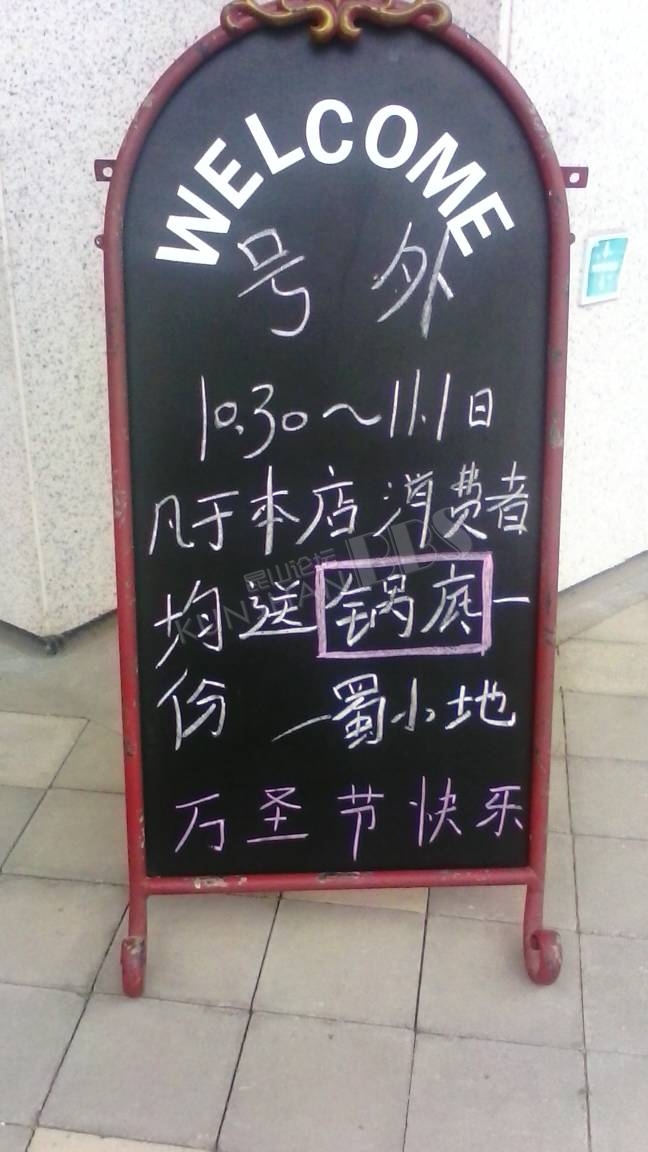 WELCOME
号外
10.30～11.1日
凡于本店消费者
均送锅底一
份 一蜀小地
万圣节快乐
昆山论坛
KUNSHAN BBS